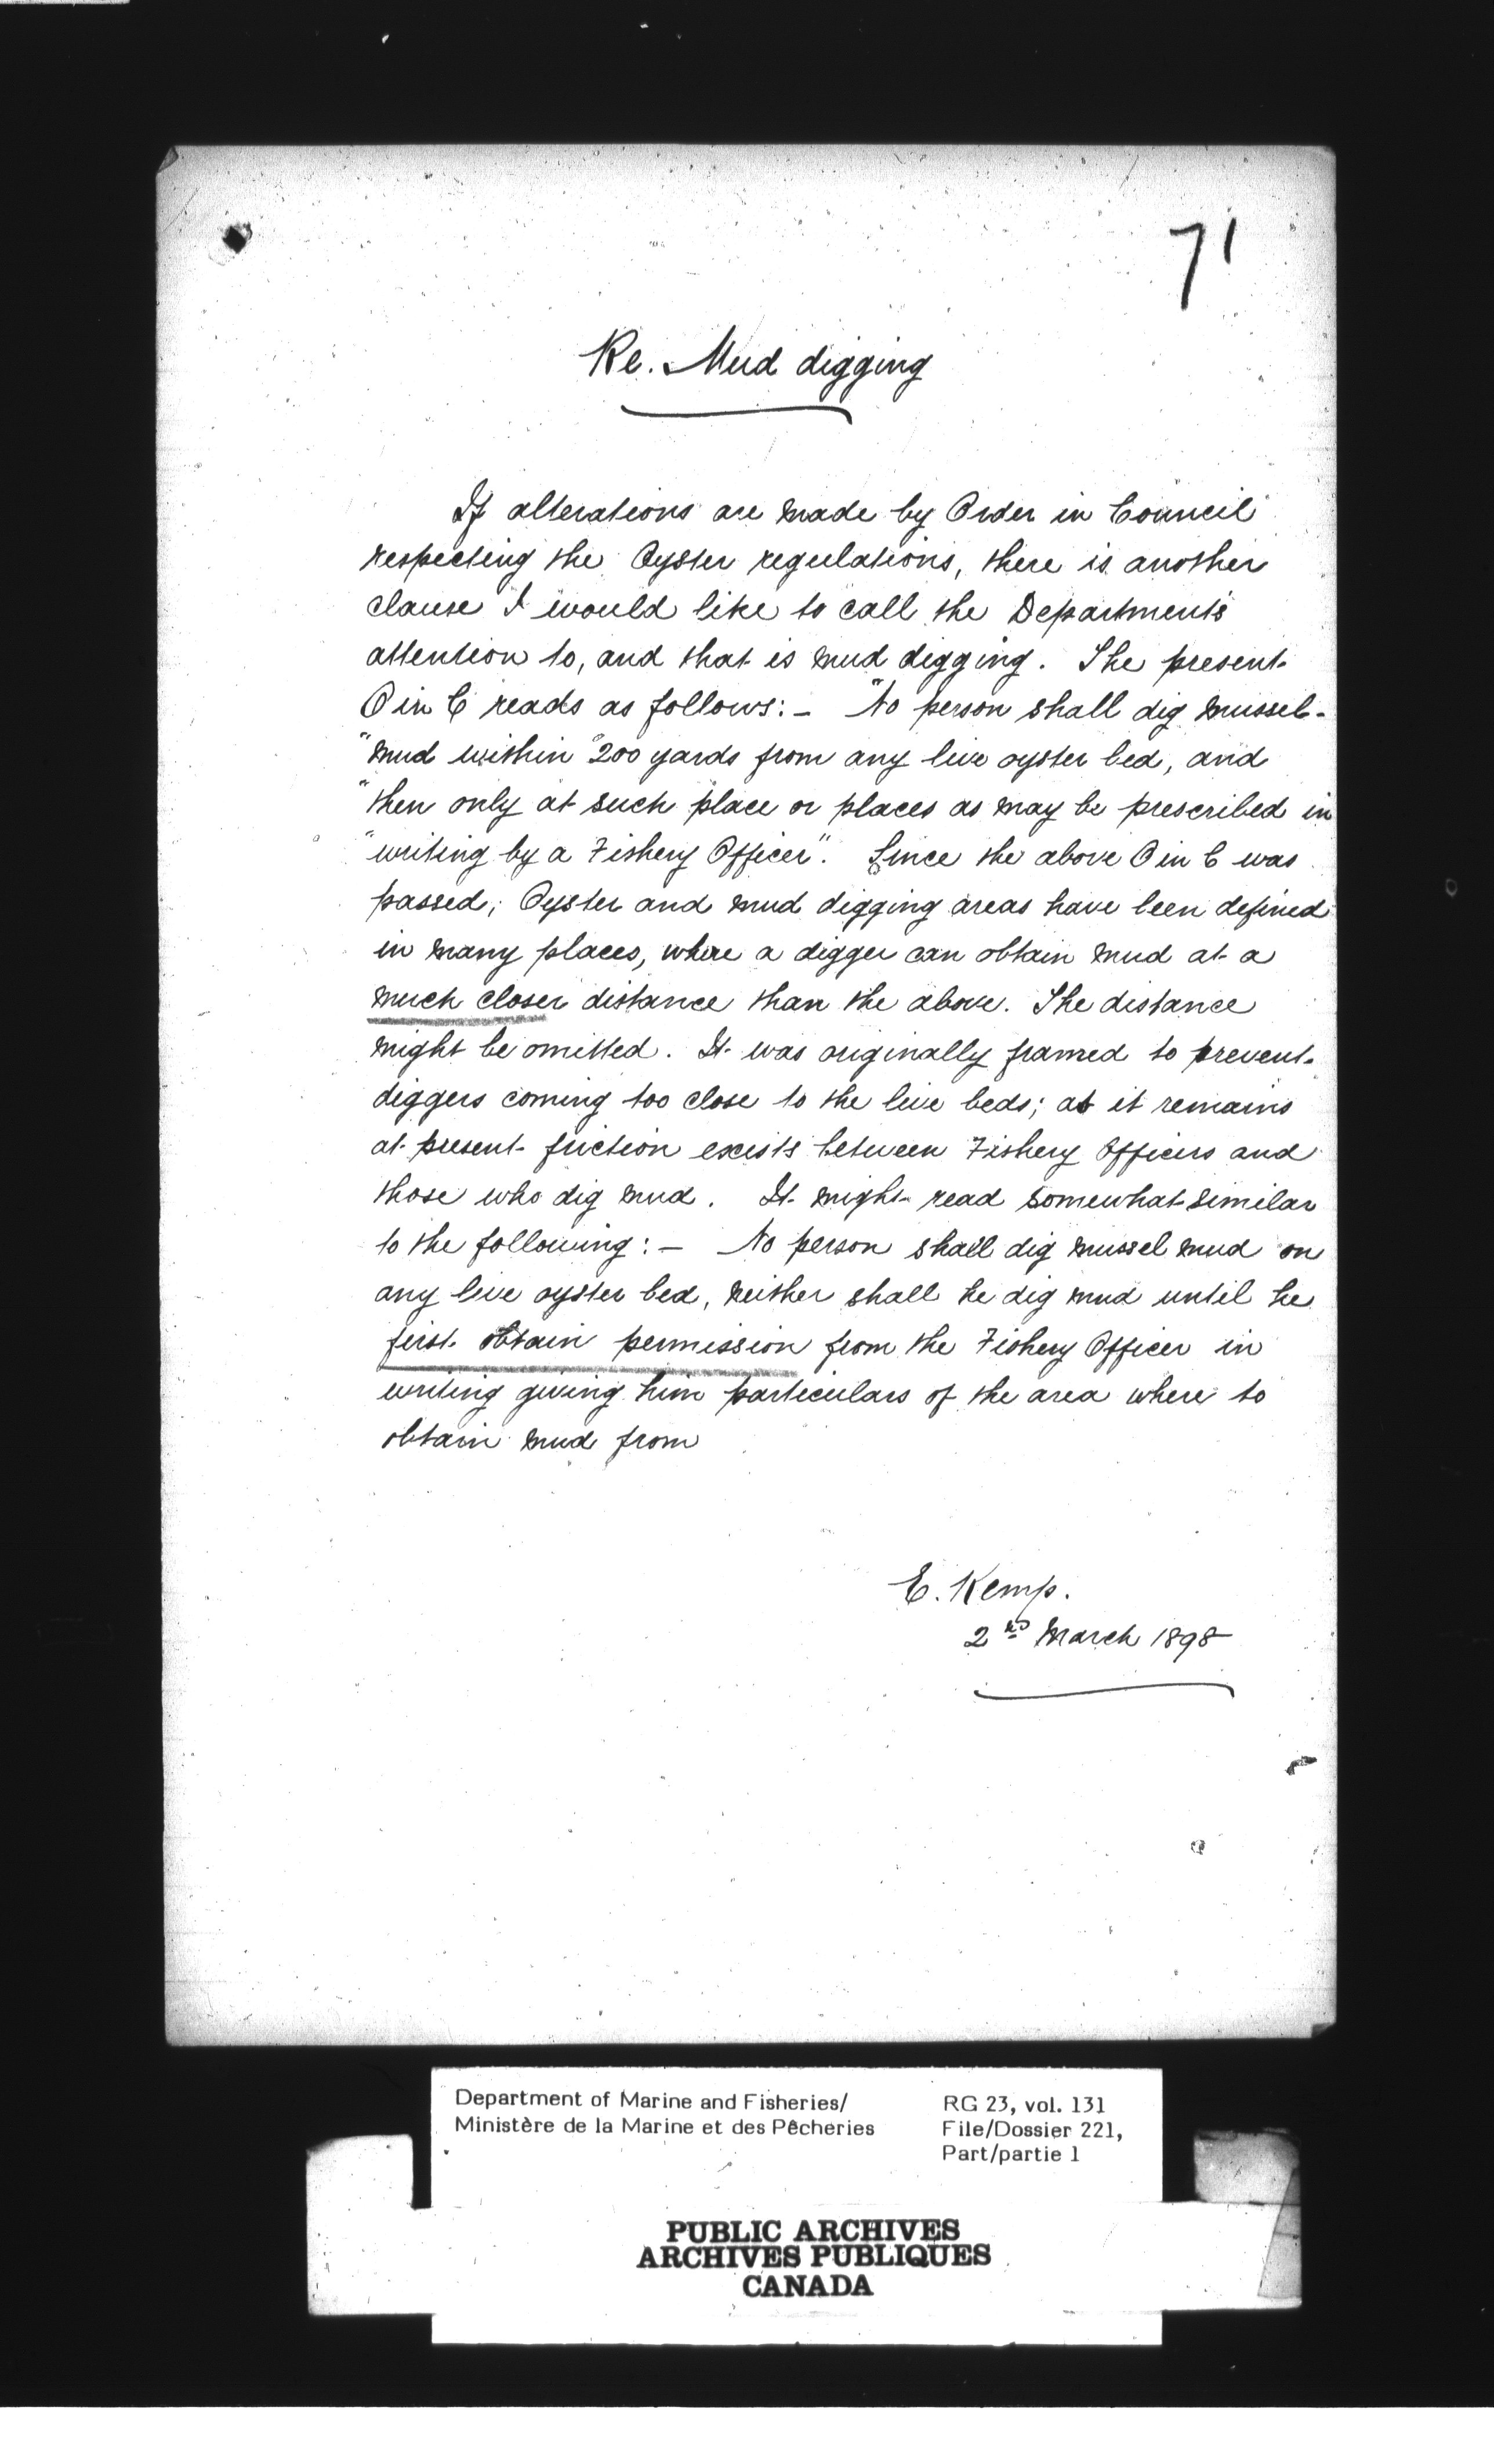 71
Re. Mud digging
If alterations are made by Order in Council
respecting the Oyster regulations, there is another
clause I would like to call the Department's
attention to, and that is mud digging. The present
O in C reads as follows: - "No person shall dig mussel-
"mud within 200 yards from any live oyster bed, and
"then only at such place or places as may be prescribed in
"writing by a Fishery Officer". Since the above O in C was
passed, Oyster and mud digging areas have been defined
in many places, where a digger can obtain mud at a
much closer distance than the above. The distance
might be omitted. It was originally framed to prevent
diggers coming too close to the live beds; as it remains
at present friction exists between Fishery Officers and
those who dig mud. It might read somewhat similar
to the following: - No person shall dig mussel mud on
any live oyster bed, neither shall he dig mud until he
first obtain permission from the Fishery Officer in
writing giving him particulars of the area where to
obtain mud from
E. Kemp.
2nd March 1898
Department of Marine and Fisheries/
Ministère de la Marine et des Pêcheries
RG 23, vol. 131
File/Dossier 221,
Part/partie 1
PUBLIC ARCHIVES
ARCHIVES PUBLIQUES
CANADA